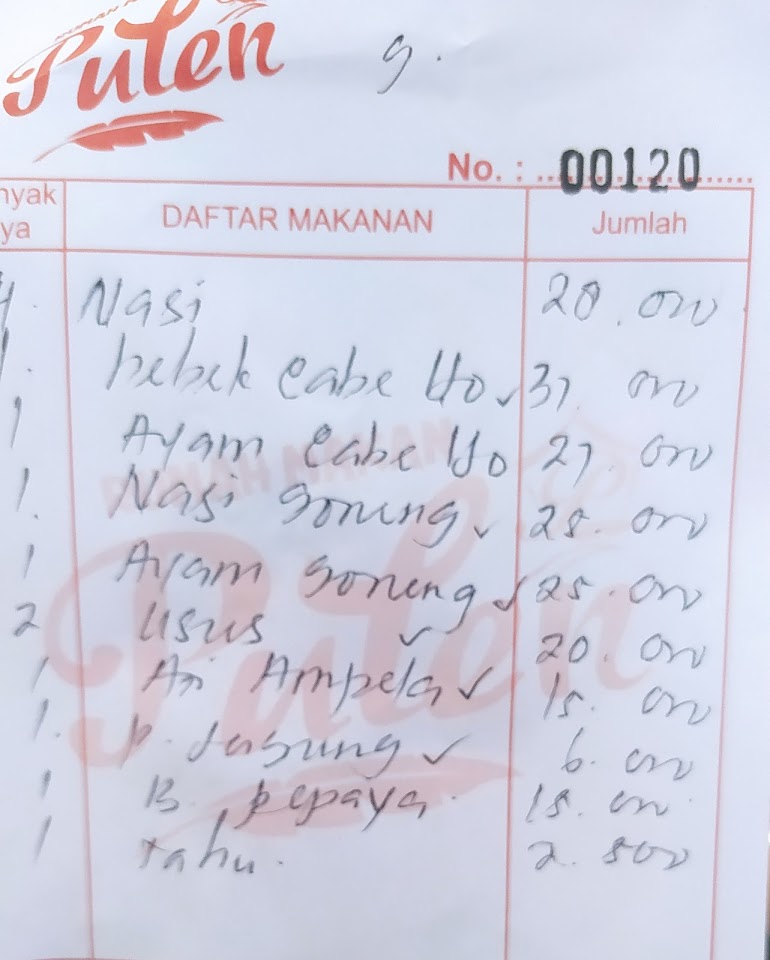 Pulen
9.
No. : 00120
nyak
ya
DAFTAR MAKANAN
Jumlah
4. Nasi 28.000
1. bebek Cabe Ijo 37.000
1 Ayam Cabe Ijo 27.000
1. Nasi Goreng 25.000
1 Ayam Goreng 25.000
2 Usus 20.000
1 Ati Ampela 15.000
1. P. 6.000
1 B. pepaya 15.000
1 tahu. 2.500
RUMAH MAKAN
Pulen